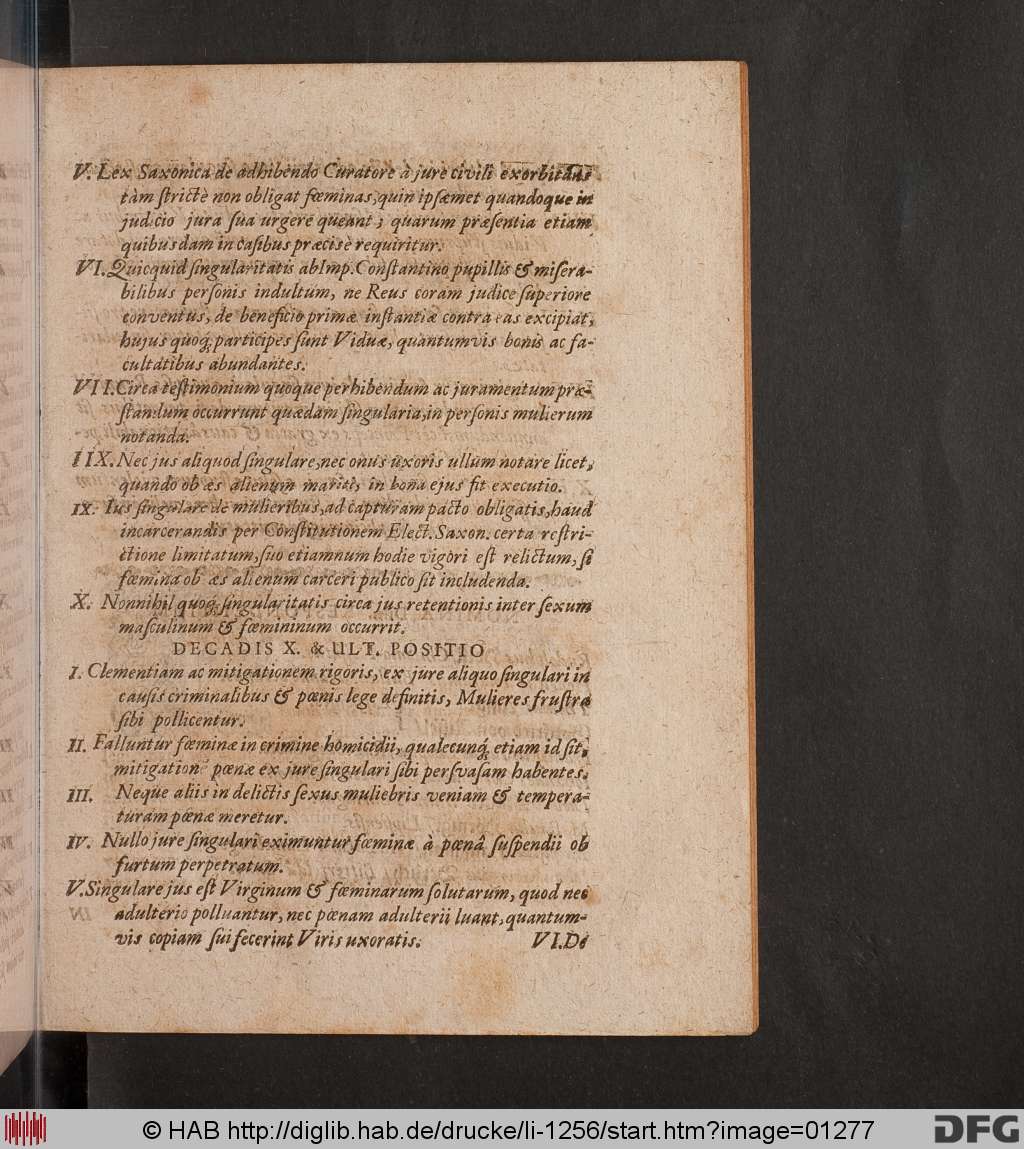 V. Lex Saxonica de adhibendo Curatore à jure civili exorbitans
tàm strictè non obligat fœminas, quin ipsæmet quandoque in
judicio jura sua urgere queant; quarum præsentia etiam
quibusdam in casibus præcisè requiritur.
VI. Quicquid singularitatis ab Imp. Constantino pupillis & misera-
bilibus personis indultum, ne Reus coram judice superiore
conventus, de beneficio primæ instantiæ contra eas excipiat,
hujus quoq; participes sunt Viduæ, quantumvis bonis ac fa-
cultatibus abundantes.
VII. Circa testimonium quoque perhibendum ac juramentum præ-
standum occurrunt quædam singularia, in personis mulierum
notanda.
IIX. Nec jus aliquod singulare, nec onus uxoris ullum notare licet,
quando ob æs alienum mariti, in bona ejus fit executio.
IX. Ius singulare de mulieribus, ad capturam pacto obligatis, haud
incarcerandis per Constitutionem Elect. Saxon. certa restri-
ctione limitatum, suo etiamnum hodie vigori est relictum, si
fœmina ob æs alienum carceri publico sit includenda.
X. Nonnihil quoq; singularitatis circa jus retentionis inter sexum
masculinum & fœmininum occurrit.
DECADIS X. & ULT. POSITIO
I. Clementiam ac mitigationem rigoris, ex jure aliquo singulari in
causis criminalibus & pœnis lege definitis, Mulieres frustra
sibi pollicentur.
II. Falluntur fœminæ in crimine homicidii, qualecunq; etiam id sit,
mitigationē pœnæ ex jure singulari sibi persvasam habentes.
III. Neque aliis in delictis sexus muliebris veniam & tempera-
turam pœnæ meretur.
IV. Nullo jure singulari eximuntur fœminæ à pœnâ suspendii ob
furtum perpetratum.
V. Singulare jus est Virginum & fœminarum solutarum, quod nec
adulterio polluantur, nec pœnam adulterii luant, quantum-
vis copiam sui fecerint Viris uxoratis. VI. De
© HAB http://diglib.hab.de/drucke/li-1256/start.htm?image=01277
DFG